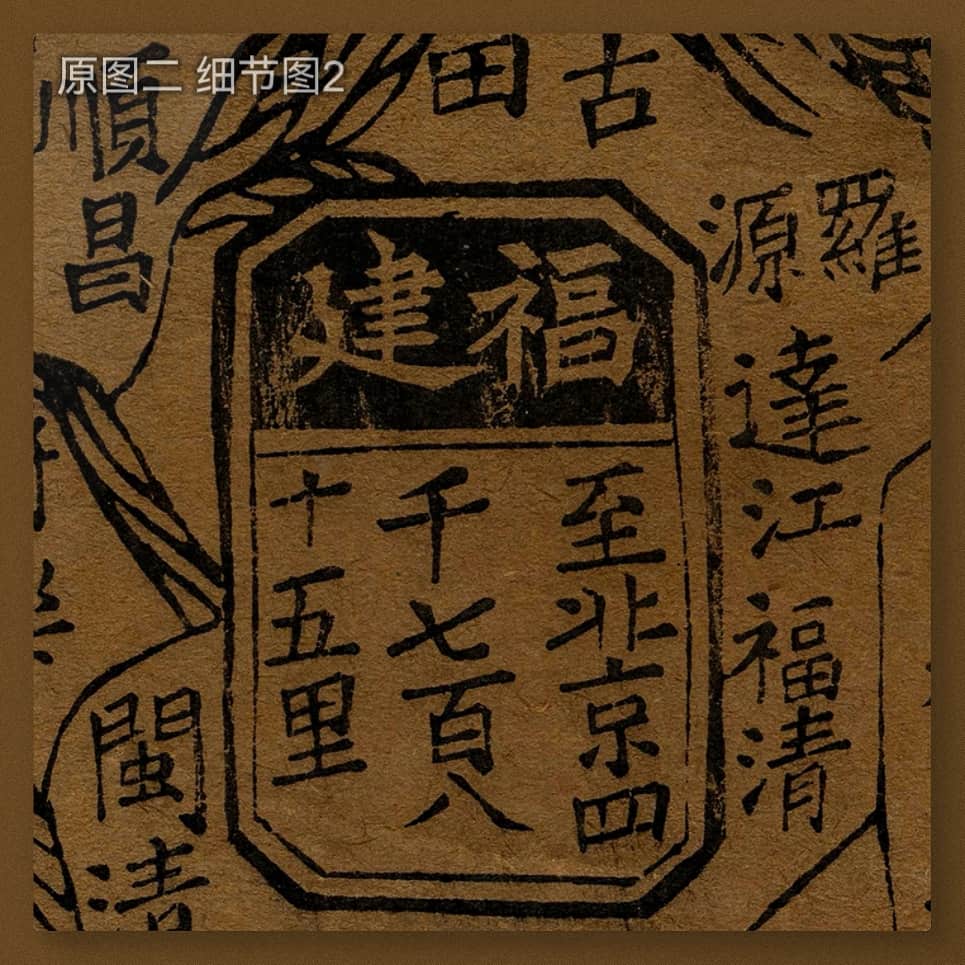 原图二 细节图2
田
古
順昌
羅源
達江
福清
福建
至北京四
千七百八
十五里
閩清